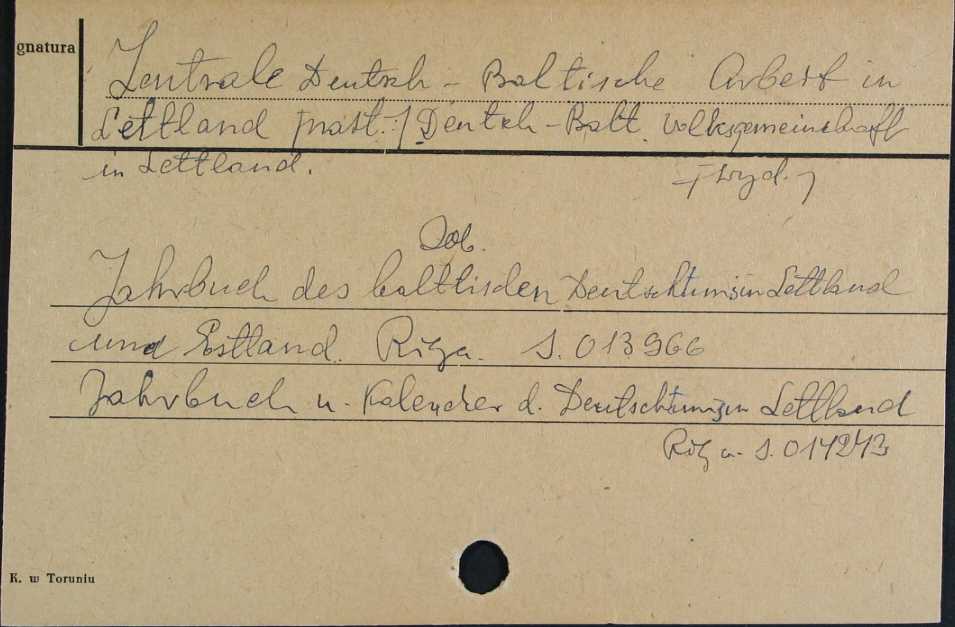 gnatura
Zentrale Deutsch - Baltische Arbeit in
Lettland nast. / Deutsch - Balt. Volksgemeinschaft
in Lettland. / wyd. /
Zob.
Jahrbuch des baltischen Deutschtums in Lettland
und Estland. Riga. S. 013966
Jahrbuch u. Kalender d. Deutschtums in Lettland
Riga. S. 014243
K. w Toruniu